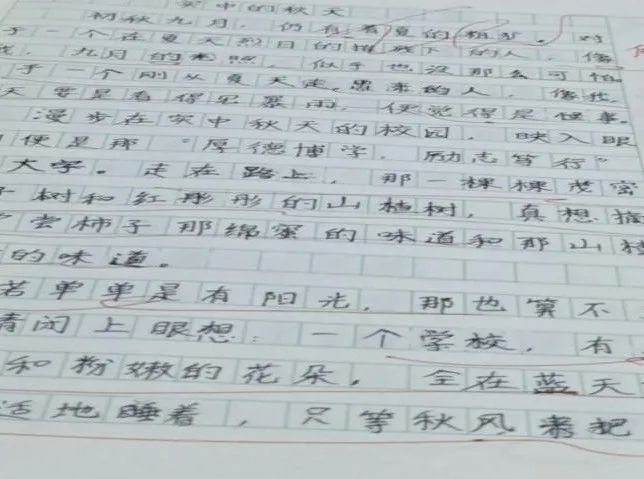 实中的秋天
初秋九月，仍有着夏的粗犷。对
于一个在夏天烈日的下的人，像
我，九月的光照，似乎也没那么可怕
于一个刚从夏天走出来的人，像我，
天要是看得见，便觉得是怪事。
漫步在实中秋天的校园，映入眼
便是那“厚德博学，励志笃行”
大字。走在路上，那一棵棵
树和红彤彤的山楂树，真想
去柿子那绵蜜的味道和那山楂
的味道。
若单单是有阳光，那也算不
请闭上眼想：一个学校，有
和粉嫩的花朵，全在蓝天
适地睡着，只等秋风来把